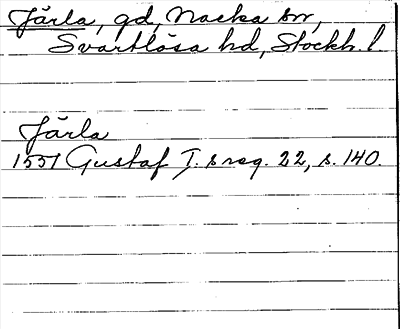 Järla, gd, Nacka sn,
Svartlösa hd, Stockh. l.
Järla
1551 Gustaf I:s reg. 22, s. 140.